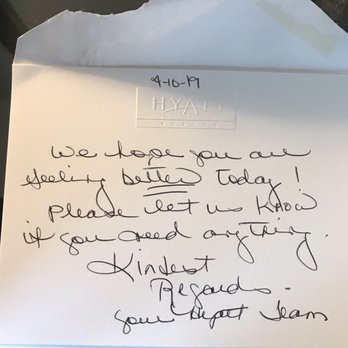 4-10-19
HYATT
We hope you are
feeling better today!
Please let us know
if you need anything.
Kindest
Regards.
your Hyatt Team